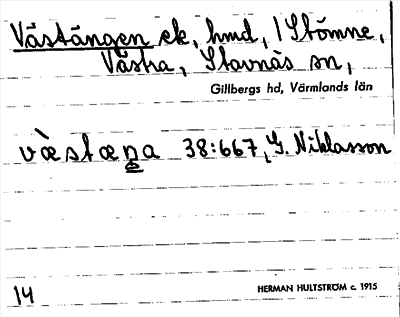 Västängen ek, hmd, 1 Stömne,
Västra, Stavnäs sn,
Gillbergs hd, Värmlands län
væ̀stæŋa 38:667, G. Niklasson
14
HERMAN HULTSTRÖM c. 1915